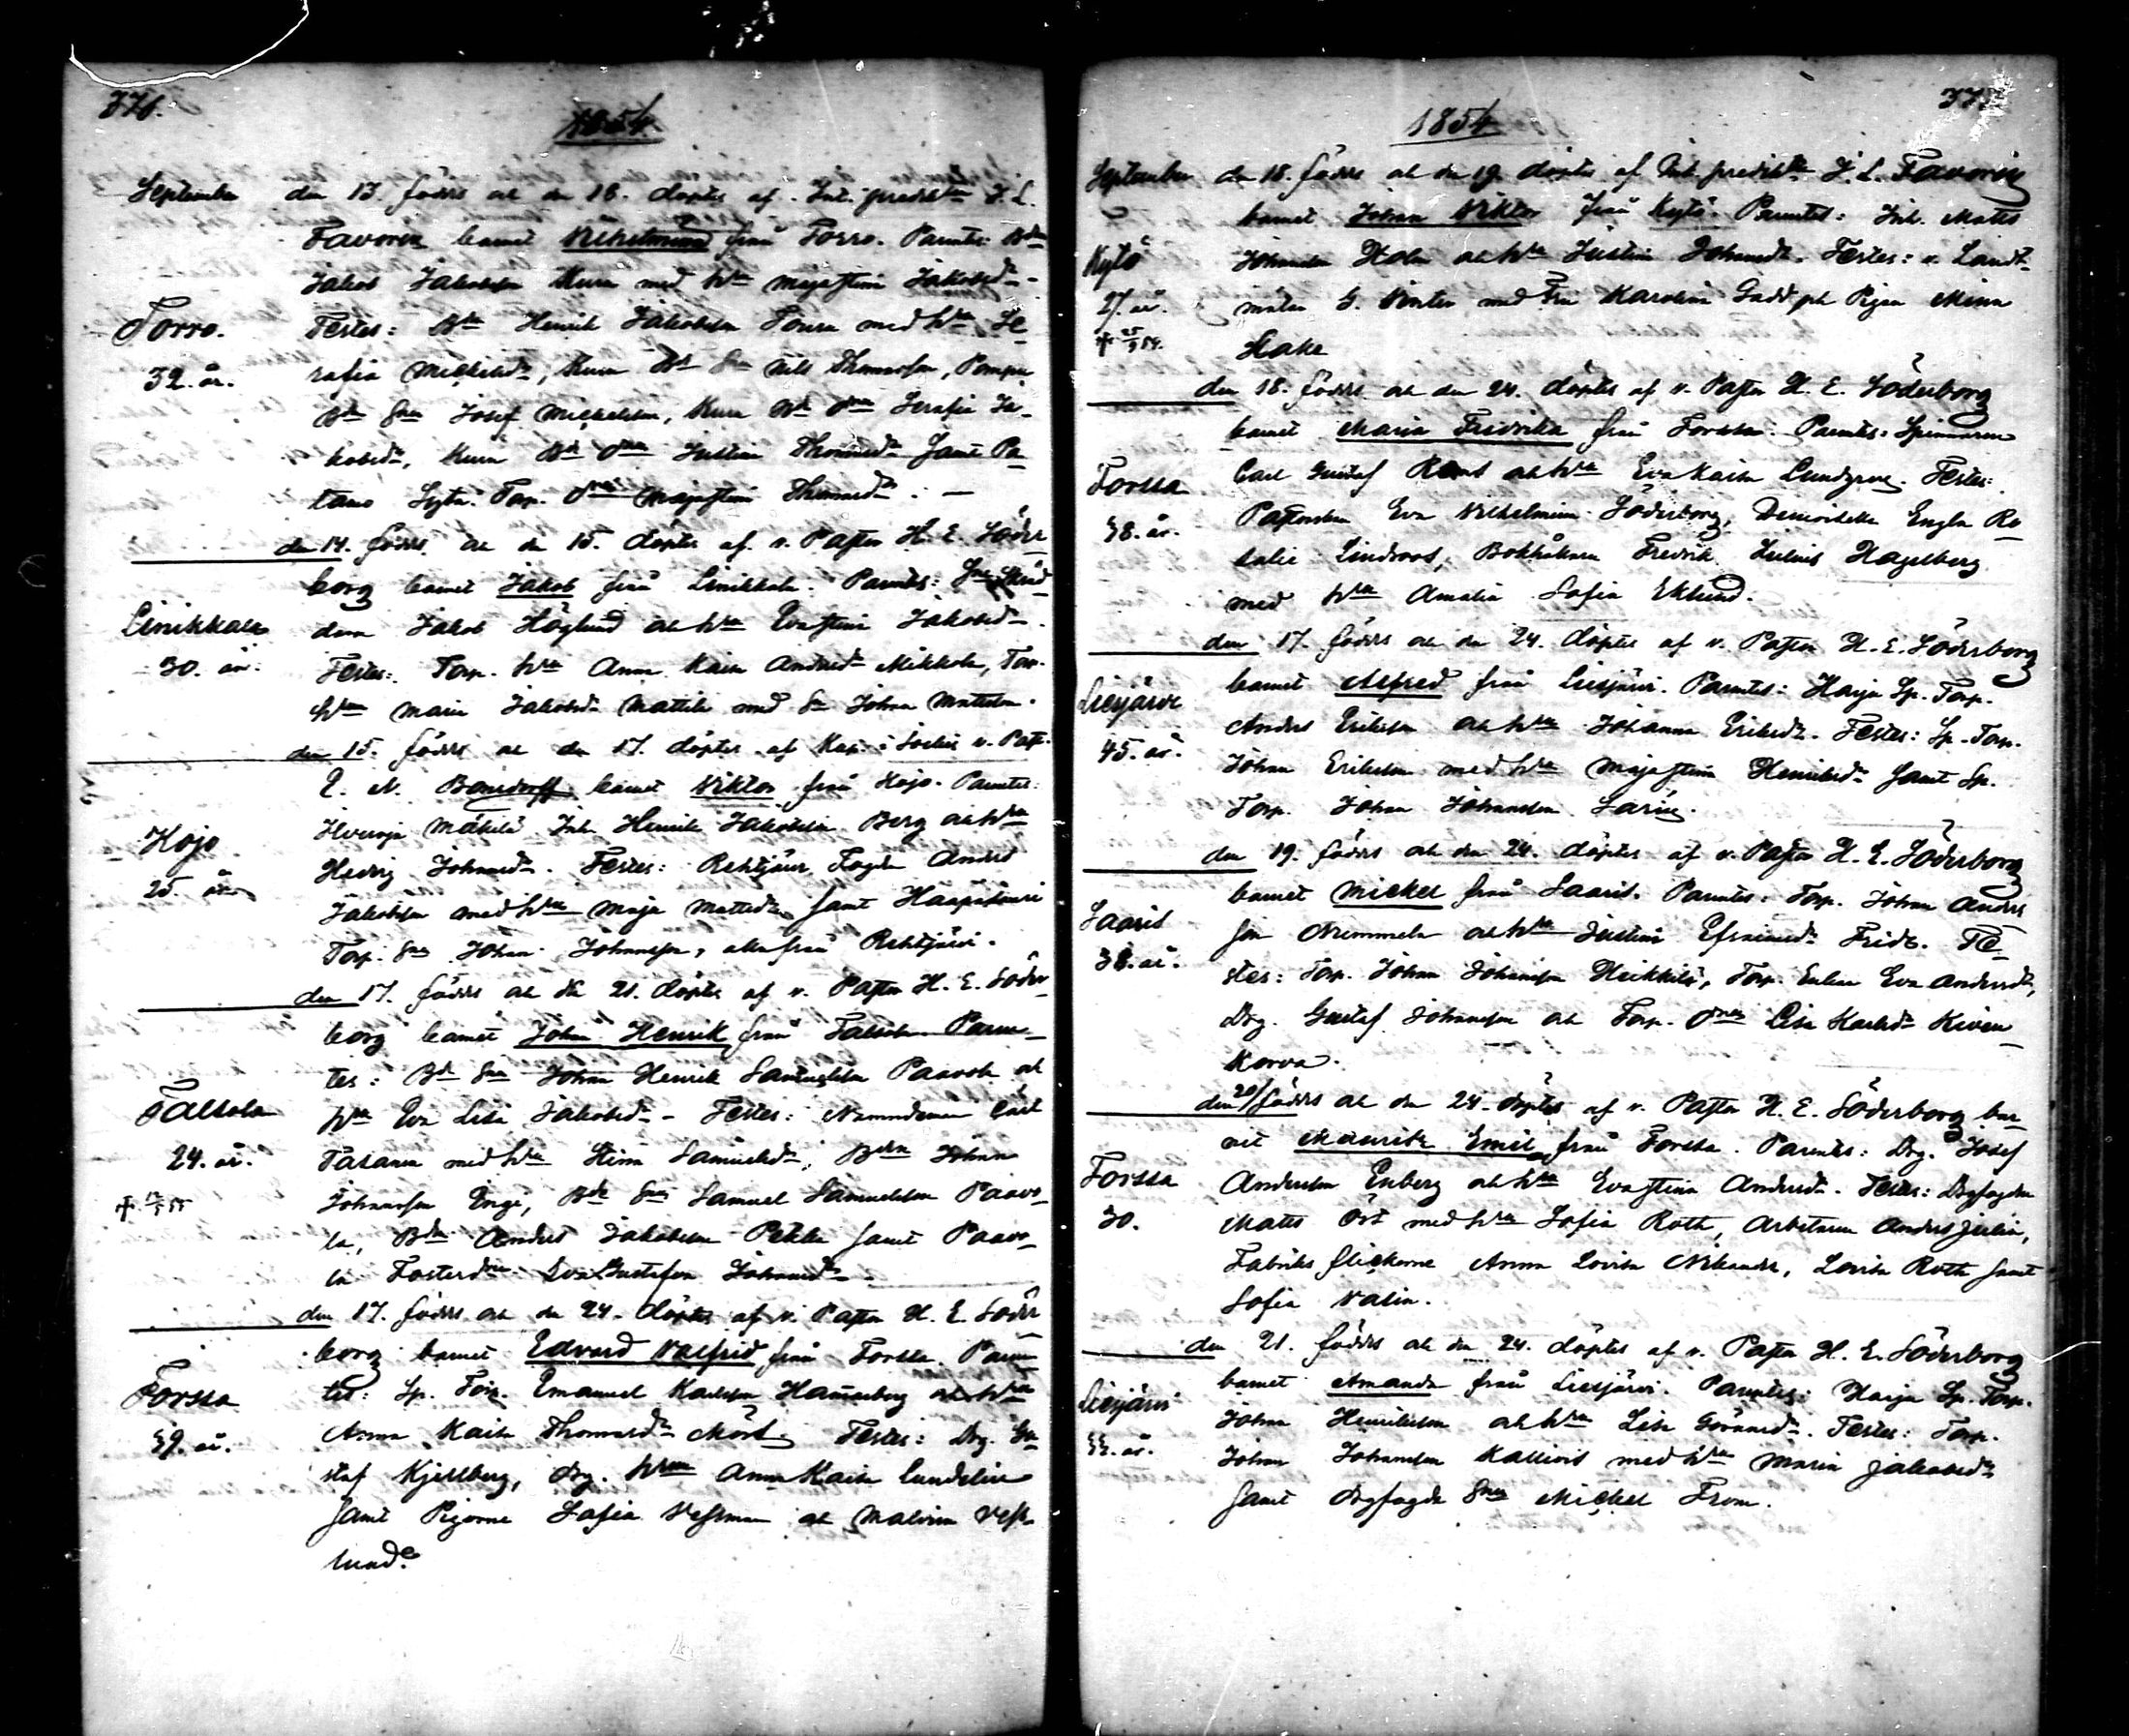 376.
1854.
September den 13. föddes och den 16. döptes af Int. predikten J. L.
Favorin barnet Vilhelmina från Torro. Parentes: Bdn
Jakob Jakobsson Kura med hru Majastina Jakobsdr.
Torro. Testes: Bdn Henrik Jakobsson Soura med hru Se-
32. år. rafia Mickelsdr, Kura Bd Sn Nils Thomasson,
Bd Sn Josef Mickelsson, Kura Bd dr Serafia Ja-
kobsdr, Kura Bd dr Justina Thomasdr samt Pa-
tamo Sytn. Torp. dr Majastina Thomasdr. —
den 14. föddes och den 15. döptes af v. Pastor H. E. Söder-
borg barnet Jakob från Linikkala. Parentes:
Linikkala Jakob Höglund och hru Evastina Jakobsdr.
30. år. Testes: Torp. hru Anna Kaisa Andersdr Mikkola, Torp.
hru Maria Jakobsdr Mattila med Sn Johan Mattsson.
den 15. föddes och den 17. döptes af Kap. i Sockn v. Past.
E. N. Bonsdorff barnet Viktor från Kojo. Parentes:
Kojo Mäkilä Inh. Henrik Jakobsson Berg och hru
25. år Hedvig Johansdr. Testes: Rehtijärvi Fogden Anders
Jakobsson med hru Maja Mattsdr samt Haapasuari
Torp. Sn Johan Johansson, alla från Rehtijärvi.
den 17. föddes och den 21. döptes af v. Pastor H. E. Söder-
borg barnet Johan Henrik från Talsola. Paren-
tes: Bd Sn Johan Henrik Samuelsson Paavola och
Talsola hru Eva Lisa Jakobsdr. - Testes: Nämndeman Carl
24. år. Tasanen med hru Stina Samuelsdr, Bdn Johan
Johansson Enge, Bd Sn Samuel Samuelsson Paavo-
la, Bdn Anders Jakobsson Pekka samt Paavo-
la Fosterdr Eva Gustafva Johansdr.
den 17. föddes och den 24. döptes af v. Pastor H. E. Söder
borg barnet Edvard Valfrid från Forssa. Paren-
Forssa tes: Sp. Torp. Emanuel Karlsson Hamerberg och hru
39. år. Anna Kaisa Thomasdr Mört. Testes: Drg. Gu-
staf Kjellberg, drg. hru Anna Kaisa Lundelin
samt Pigorna Sofia Vestman och Malvina Vest-
lund.
377
1854
September den 18. föddes och den 19. döptes af Int. predikten J. L. Favorin
barnet Johan Viktor från Kytö. Parentes: Inh. Matts
Kytö Johansson Holm och hru Justina Johansdr. Testes: v. Landt-
27. år. mätar G. Vinter med Fru Karolina Gadd och Pigan Minna
+ 25/9 54. Hake
den 18. föddes och den 24. döptes af v. Pastor H. E. Söderborg
barnet Maria Fredrika från Forssa. Parentes: Spinnaren
Forssa Carl Gustaf Ramt och hru Eva Kaisa Lundgren. Testes:
38. år. Pastorskan Eva Vilhelmina Söderborg, Demoiselle Engla Ro-
salie Lindroos, Bokhållaren Fredrik Julius Hagelberg
med hru Amalia Sofia Eklund.
den 17. föddes och den 24. döptes af v. Pastor H. E. Söderborg
Liesjärvi barnet Alfred från Liesjärvi. Parentes: Harju Sp. Torp.
45. år. Anders Eriksson och hru Johanna Eriksdr. Testes: Sp. Torp.
Johan Eriksson med hru Majastina Henriksdr samt Sp.
Torp. Johan Johansson Sarin.
den 19. föddes och den 24. döptes af v. Pastor H. E. Söderborg
Saaris barnet Mickel från Saaris. Parentes: Torp. Johan Anders
38. år. son Nummela och hru Justina Efraimsdr Frids. Te-
stes: Torp. Johan Johansson Heikkilä, Torp. Enkan Eva Andersdr,
Drg. Gustaf Johansson och Torp. dr Lisa Karlsdr Kiven-
korva.
den 20/ föddes och den 24. döptes af v. Pastor H. E. Söderborg bar-
net Mauritz Emil från Forssa. Parentes: Drg. Josef
Forssa Andersson Enberg och hru Evastina Andersdr. Testes: Drgfogden
30. Matts Öst med hru Sofia Roth, Arbetaren Anders Julin,
Fabriks flickorna Anna Lovisa Nikander, Lovisa Roth samt
Sofia Valin.
den 21. föddes och den 24. döptes af v. Pastor H. E. Söderborg
Liesjärvi barnet Amanda från Liesjärvi. Parentes: Harju Sp. Torp.
33. år. Johan Henriksson och hru Lisa Göransdr. Testes: Torp.
Johan Johansson Kalliois med hru Maria Jakobsdr
samt drgfogde Sn Mickel From.